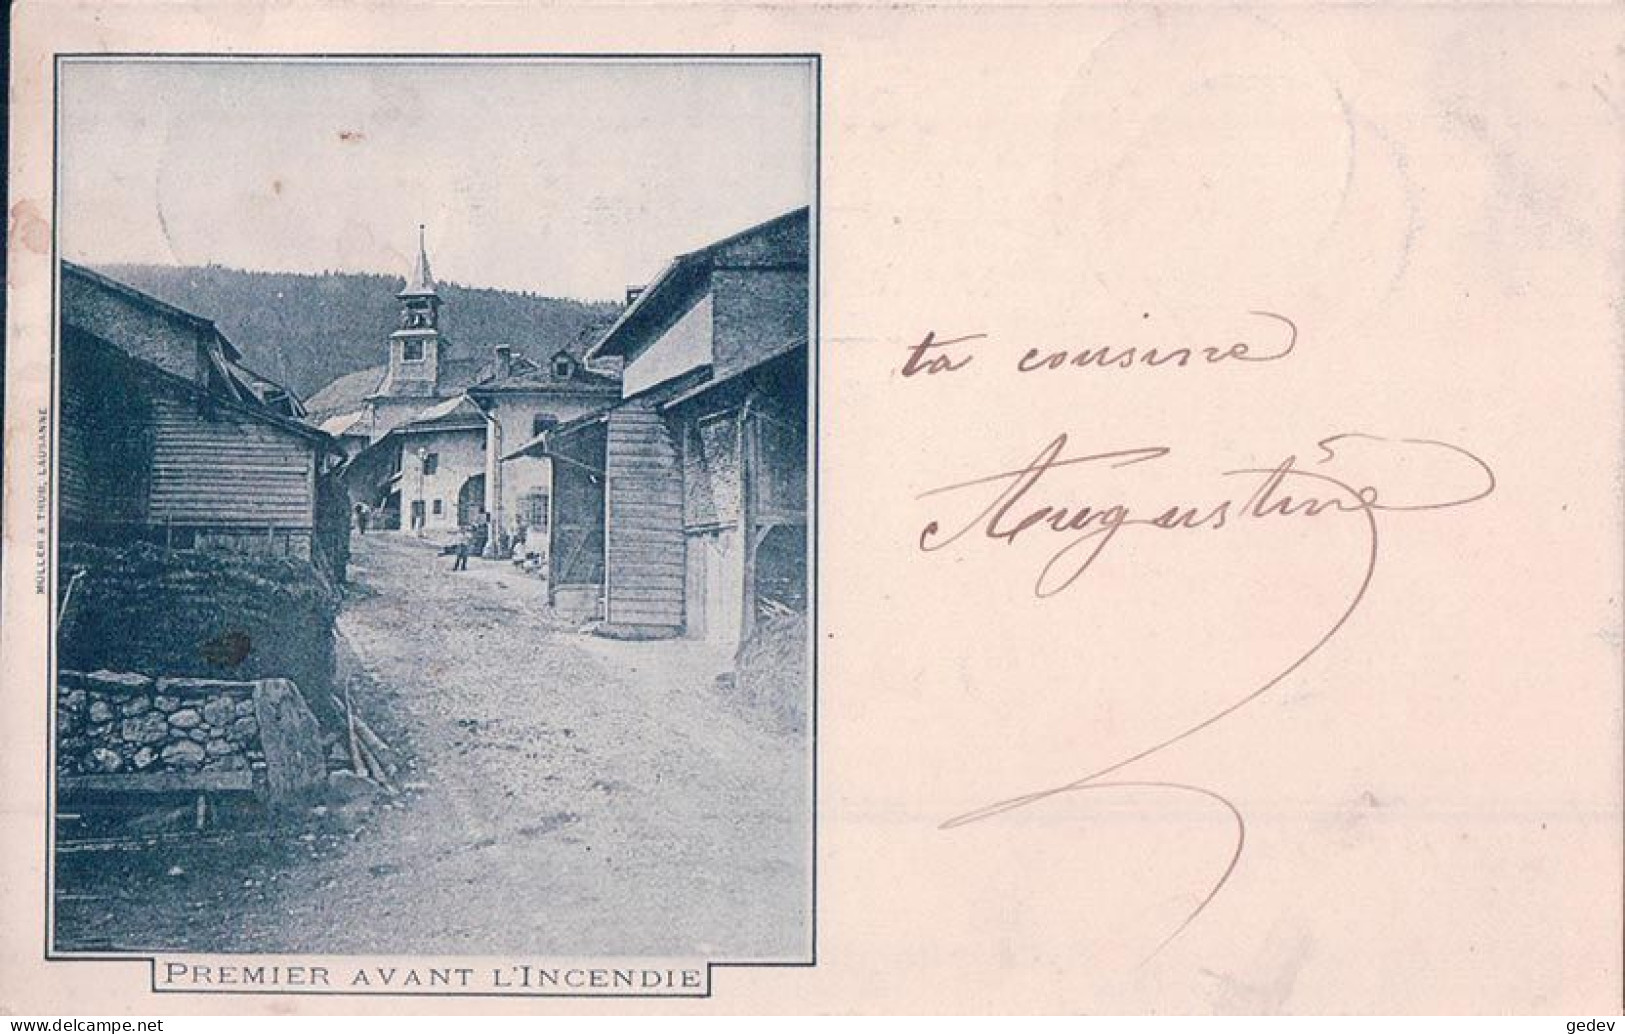 MÜLLER & TRÜB, LAUSANNE
PREMIER AVANT L'INCENDIE
ta cousine
Augustine
delcampe.net
gedev